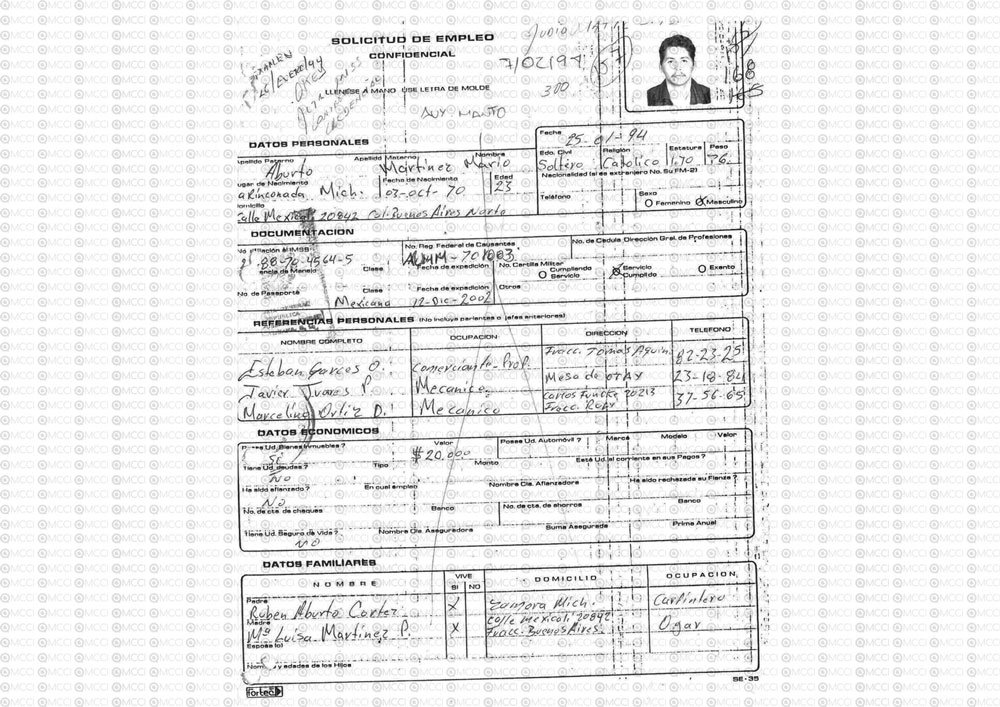 SOLICITUD DE EMPLEO
CONFIDENCIAL
7/02/94
300
LLENESE A MANO USE LETRA DE MOLDE
168
DATOS PERSONALES
Fecha 25-01-94
Apellido Paterno Apellido Materno Nombre
Aburto Martínez Mario
Edo. Civil Religión Estatura Peso
Soltero Catolico 1.70 76.
Lugar de Nacimiento Fecha de Nacimiento Edad
Nacionalidad (si es extranjero No. Su FM-2)
La Rinconada Mich. 03-oct-70 23
Teléfono Sexo
Femenino Masculino
Domicilio
Calle Mexicali 20842 Col. Buenos Aires Norte
DOCUMENTACION
No. Afiliación al IMSS No. Reg. Federal de Causantes No. de Cedula Dirección Gral. de Profesiones
88-70-4564-5 AUMM-701003
Licencia de Manejo Clase Fecha de expedición No. Cartilla Militar
Cumpliendo Servicio Servicio Cumplido Exento
No. de Pasaporte Clase Fecha de expedición Otros
Mexicana 12-Dic-2002
REFERENCIAS PERSONALES (No incluya parientes o jefes anteriores)
NOMBRE COMPLETO OCUPACION DIRECCION TELEFONO
Esteban Garces O. Comerciante-Prop. Fracc. Tomas Aquin. 82-23-25
Javier Juares P. Mecanico. Mesa de OTAY 23-18-84
Marcelino Ortiz D. Mecanico Carlos 20213 Fracc. 37-56-65
DATOS ECONOMICOS
Posee Ud. Bienes Inmuebles? Valor Posee Ud. Automóvil? Marca Modelo Valor
Si $20.000
Tiene Ud. deudas? Tipo Monto Está Ud. al corriente en sus Pagos?
No
Ha sido afianzado? En cual empleo Nombre Cía. Afianzadora Ha sido rechazada su Fianza?
No
No. de cta. de cheques Banco No. de cta. de ahorros Banco
Tiene Ud. Seguro de Vida? Nombre Cía. Aseguradora Suma Asegurada Prima Anual
NO
DATOS FAMILIARES
NOMBRE VIVE SI NO DOMICILIO OCUPACION
Padre
Ruben Aburto Cortez X Zamora Mich. Carpintero
Madre
Mª Luisa Martinez P. X Calle Mexicali 20842 Fracc. Buenos Aires. Ogar
Esposa (o)
Nombre y edades de los Hijos
fortec SE-35
MCCI